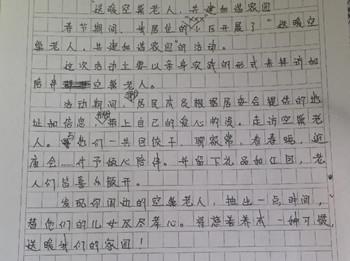 送暖空巢老人，共建和谐家园
春节期间，我居住的小区开展了“送暖空
巢老人，共建和谐家园”的活动。
这次活动主要以亲身实践的形式去拜访和
陪伴空巢老人。
活动期间，居民成员根据居委会提供的地
址和信息，带上自己的爱心和，走访空巢老
人。与他们一共包饺子、聊家常、看春晚、逛
庙会，对予倾心陪伴。并留下礼品和红包，老
人们皆喜笑颜开。
发现你周边的空巢老人，抽出一点时间，
替他们的儿女尽尽孝心。将慈善养成一种习惯，
送暖我们的家园！